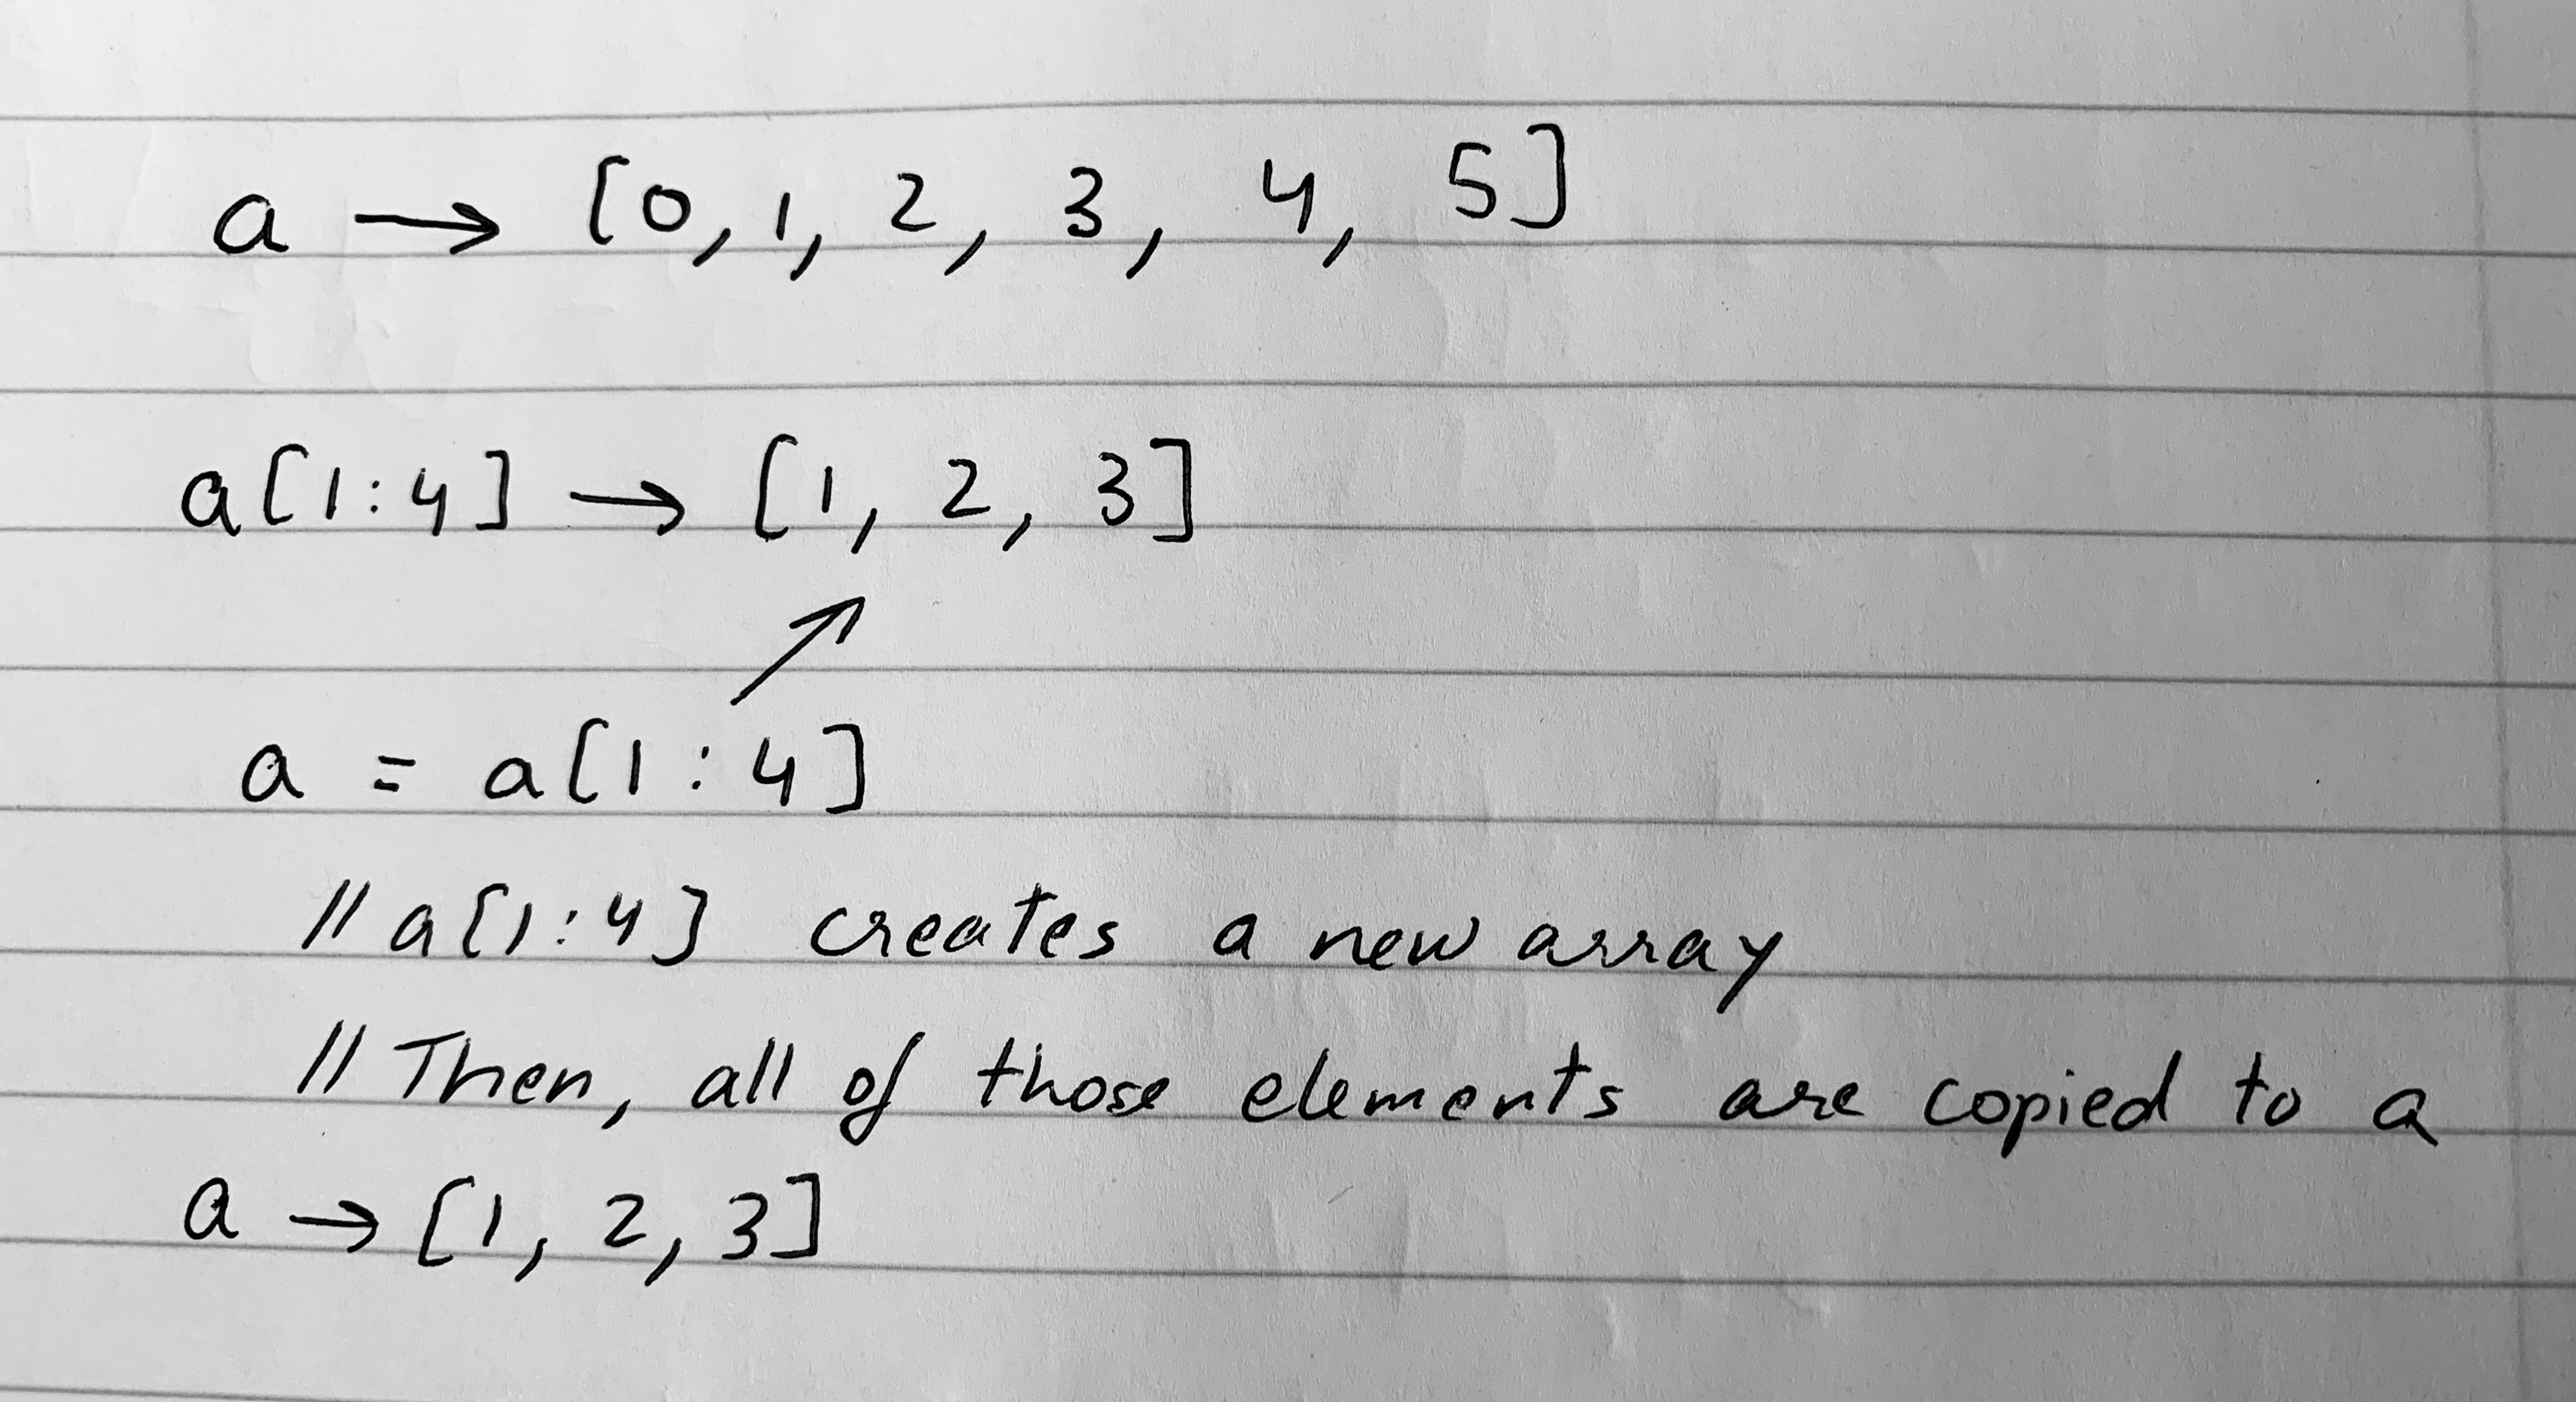 a → [0, 1, 2, 3, 4, 5]
a[1:4] → [1, 2, 3]
↗
a = a[1:4]
// a[1:4] creates a new array
// Then, all of those elements are copied to a
a → [1, 2, 3]